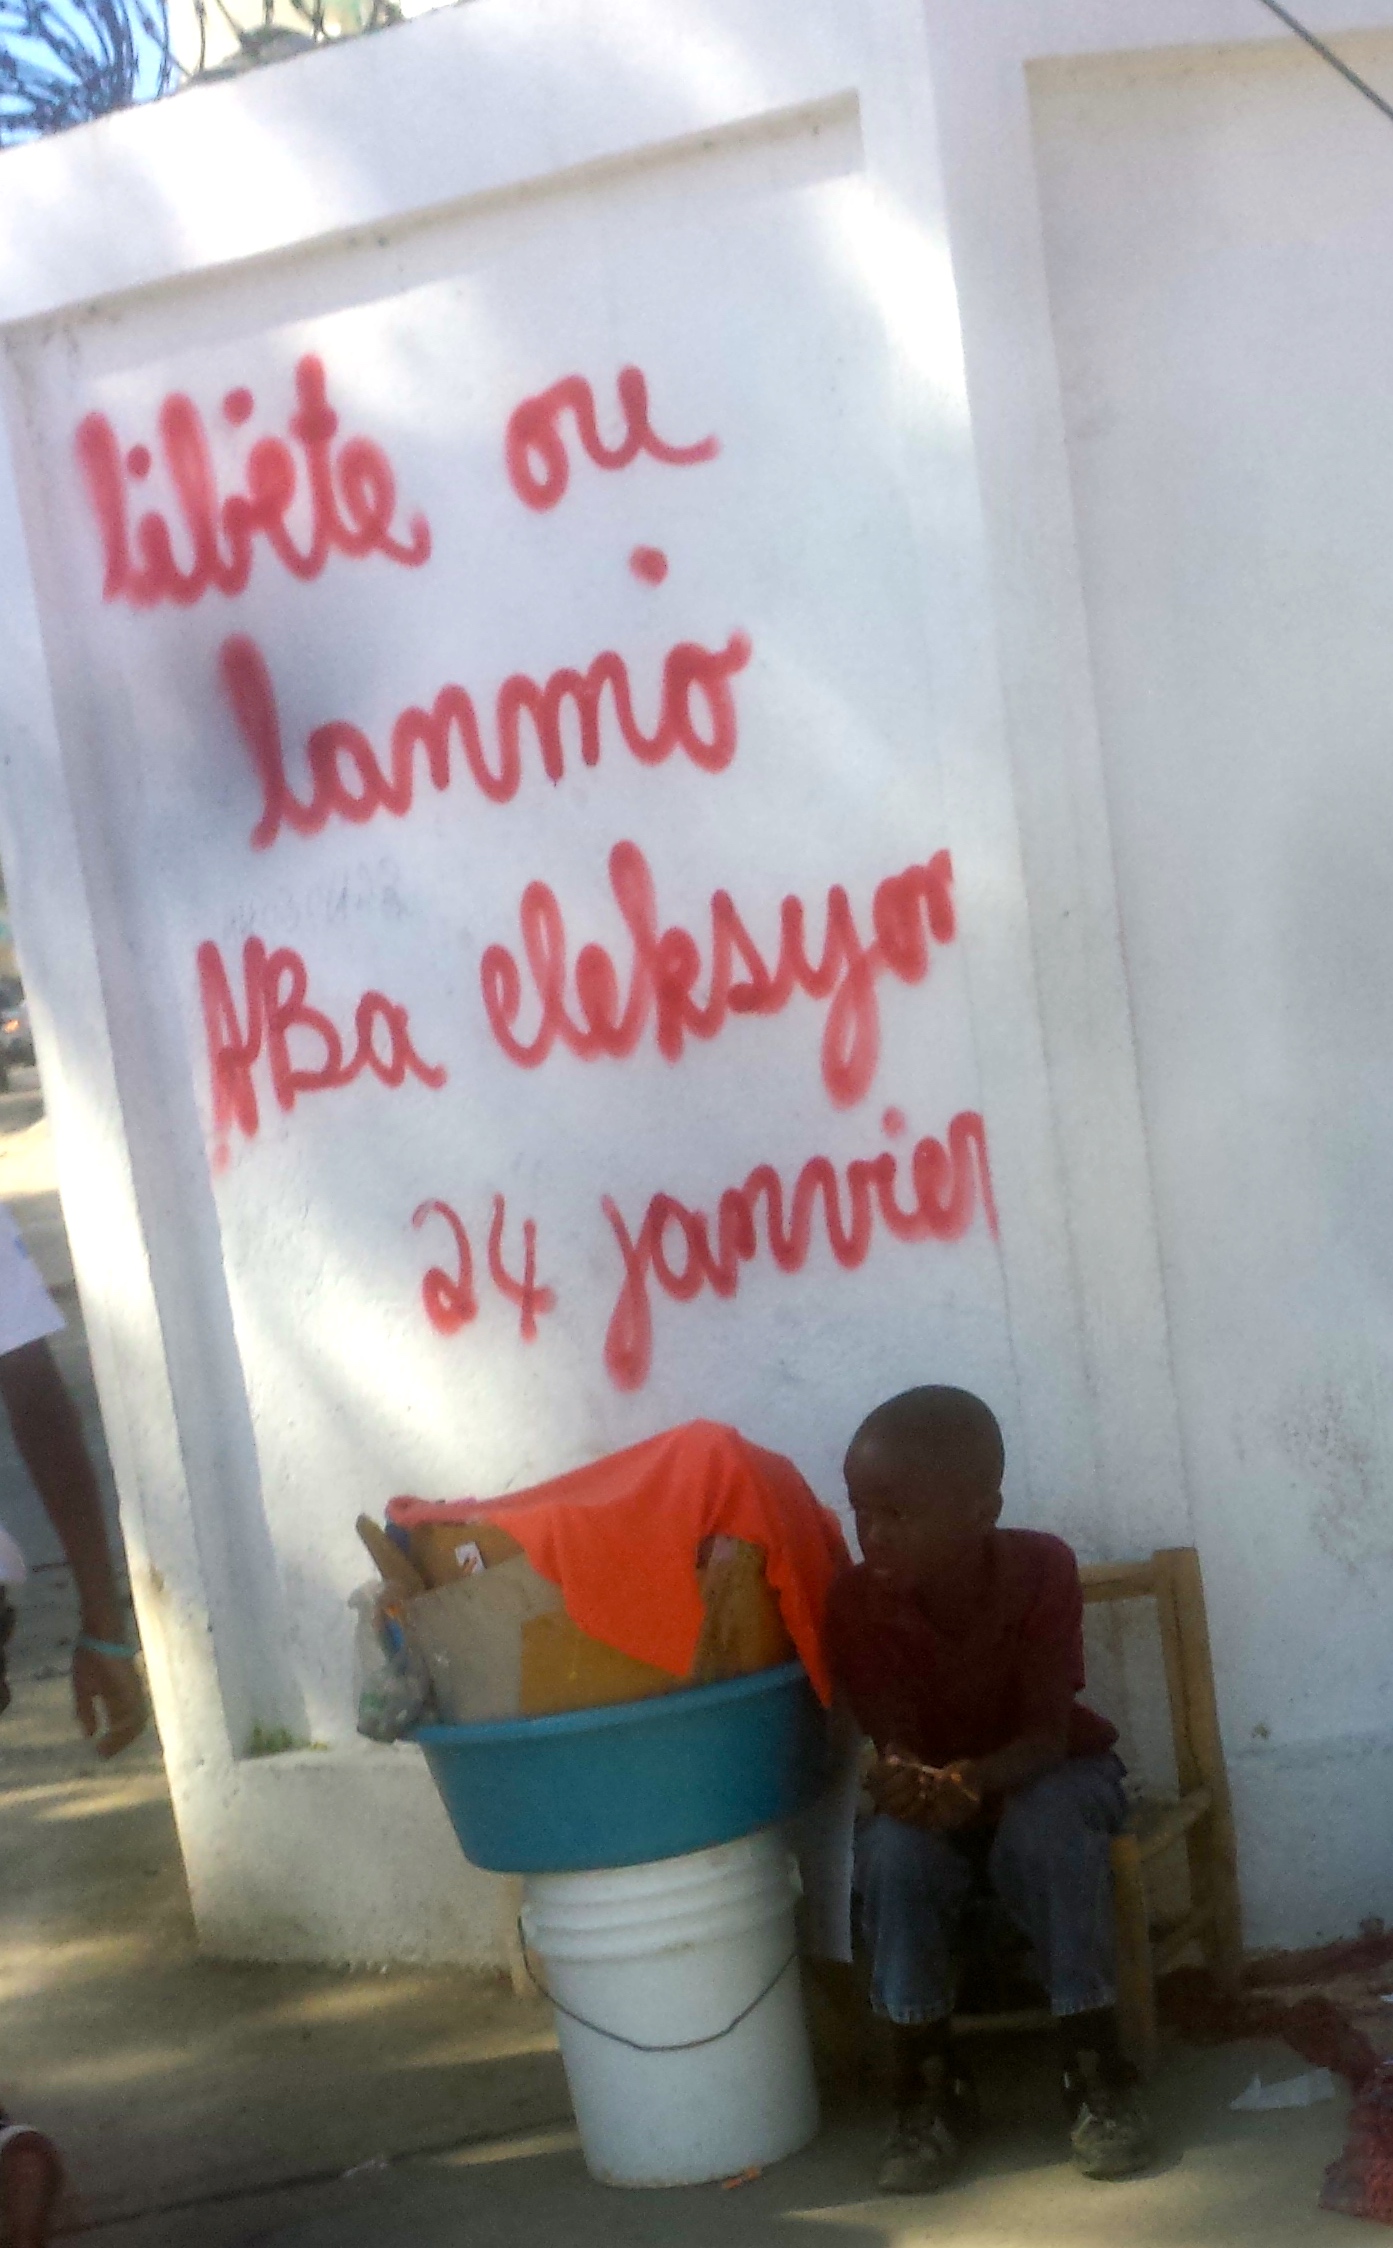 libète ou
lanmò
ABa eleksyon
24 janvier